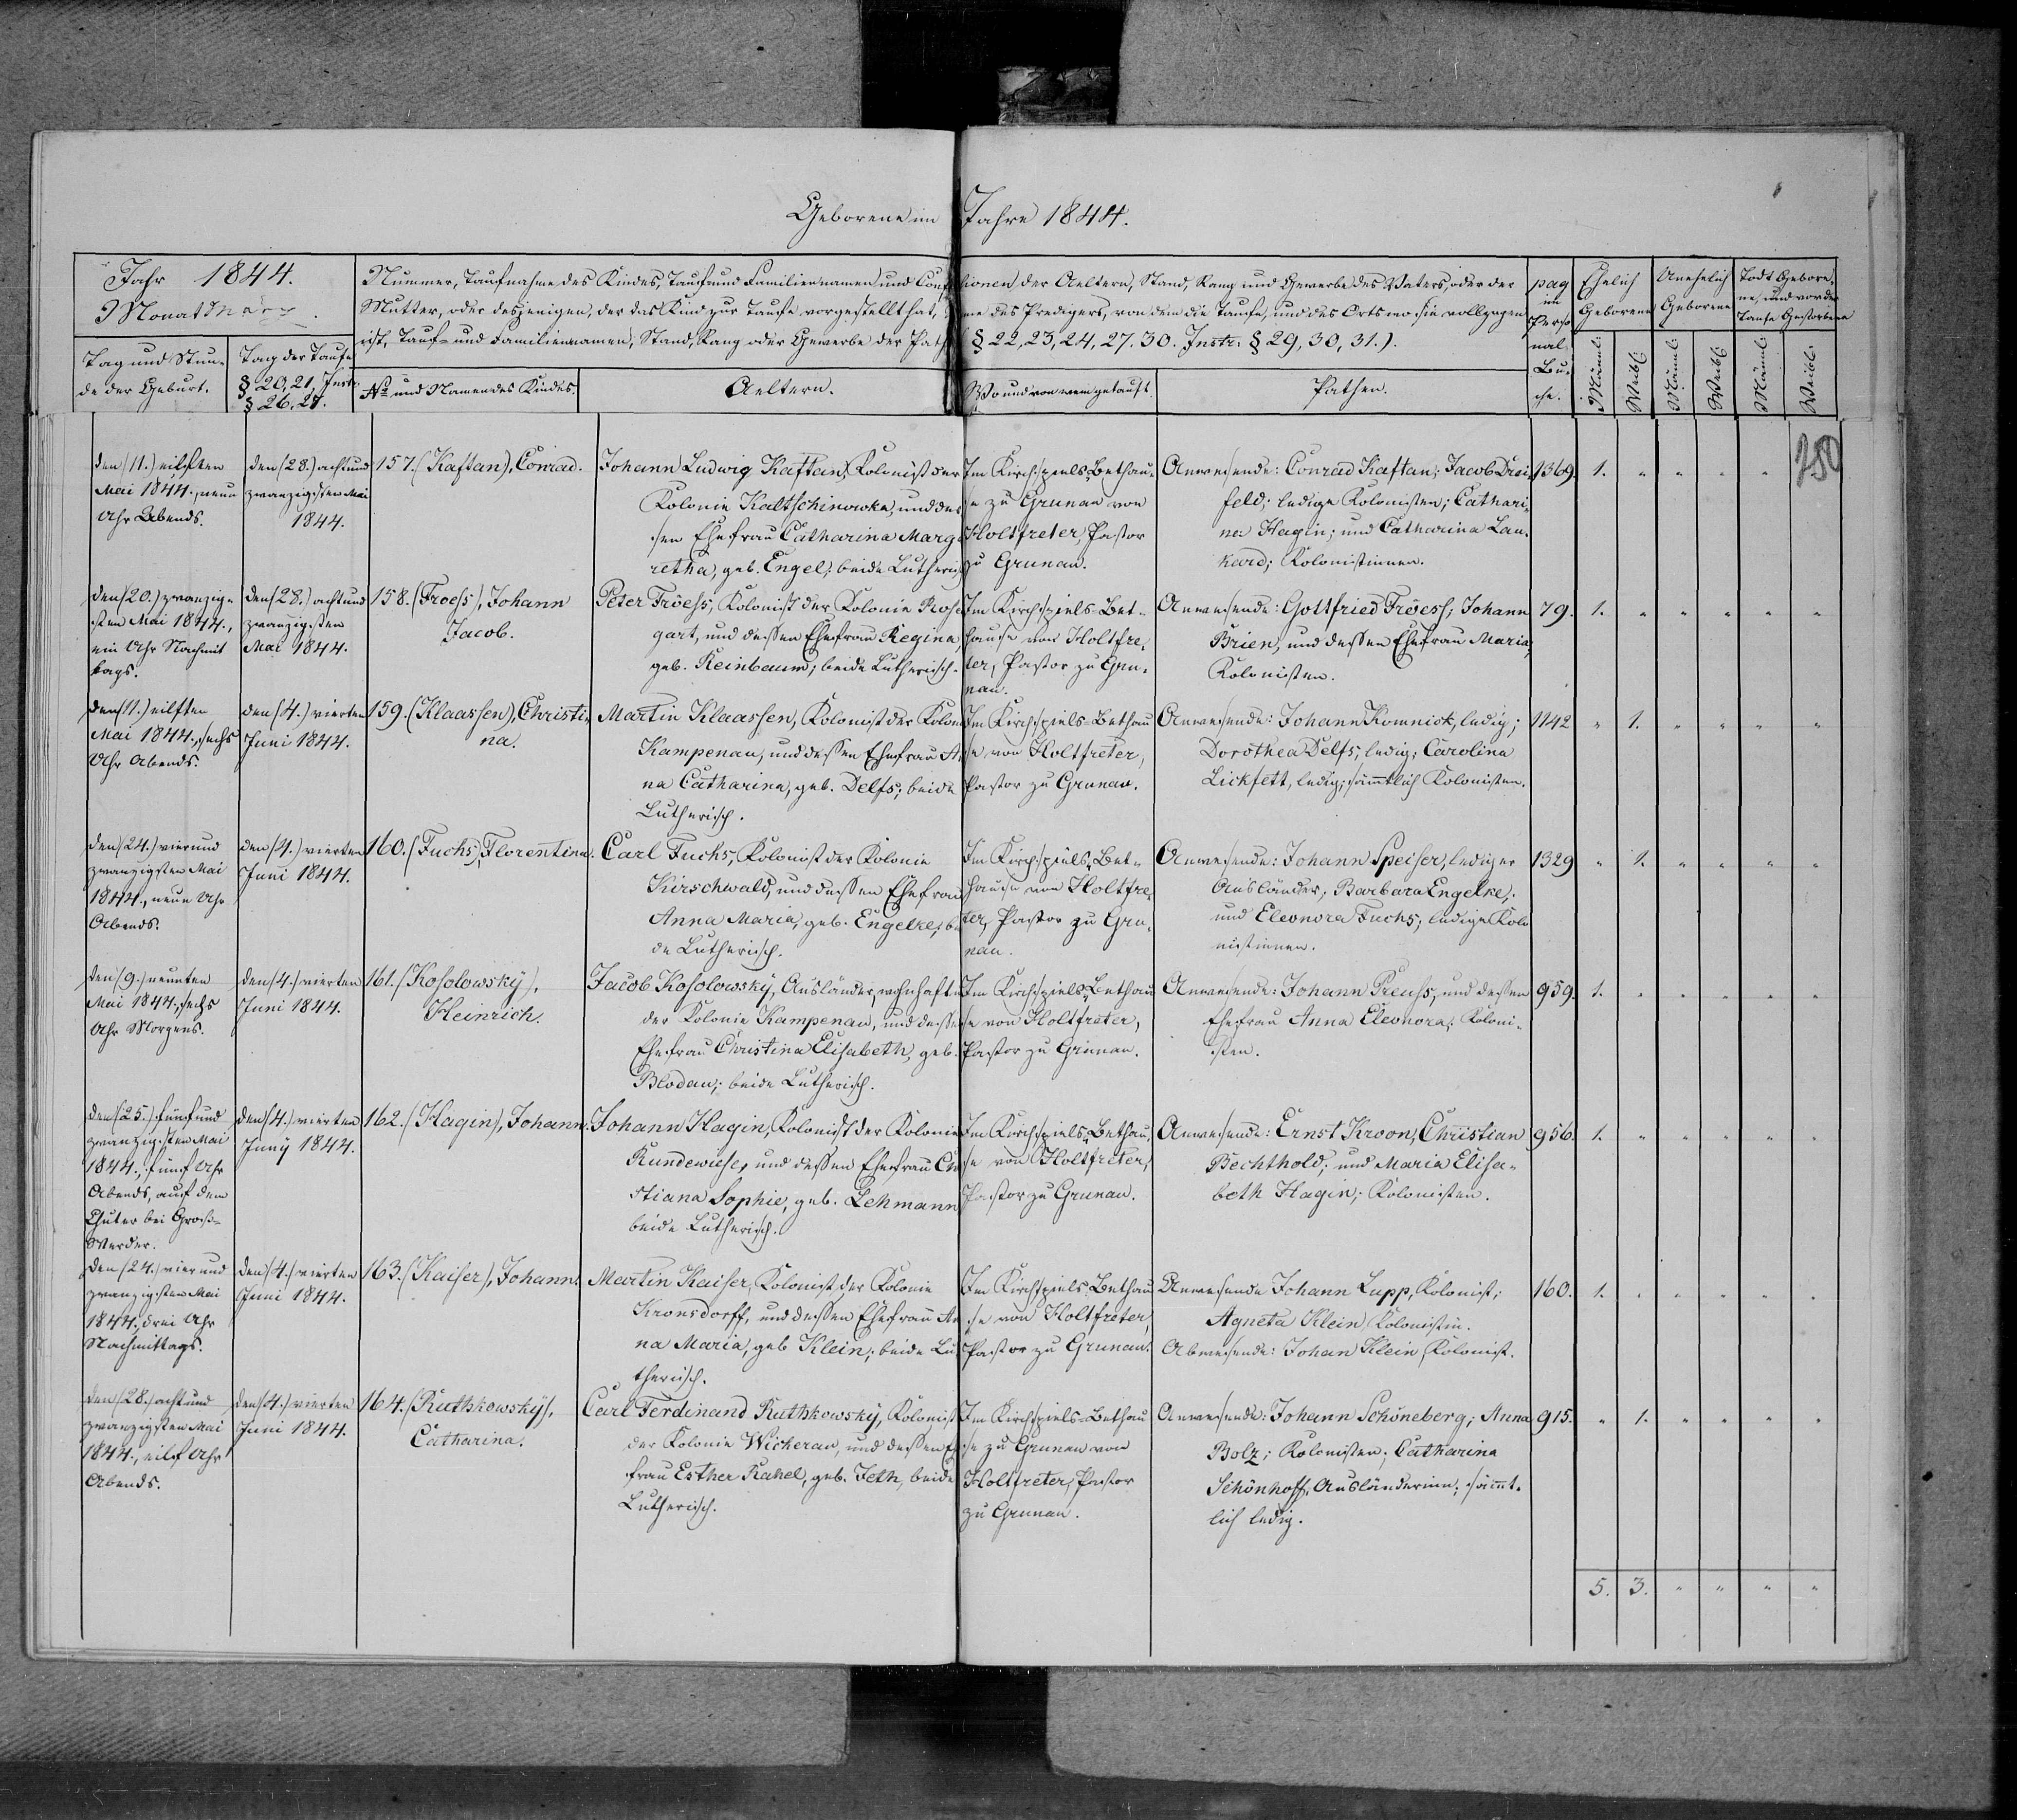 Geborene im Jahre 1844.
Jahr 1844.
Monat März.
Tag und Stun-
de der Geburt.
Tag der Taufe
§ 20, 21, Instr.
§ 26, 27.
Nummer, Taufname des Kindes, Tauf und Familiennamen und Conf
Mutter, oder desjenigen, der das Kind zur Taufe vorgestellt hat,
ist, Tauf- und Familiennamen, Stand, Rang oder Gewerbe der Path
No und Namen des Kindes.
Aeltern.
sionen der Aeltern, Stand, Rang und Gewerbe des Vaters, oder der
me des Predigers, von dem die Taufe, und des Orts wo sie vollzogen
§ 22, 23, 24, 27. 30. Instr. § 29, 30, 31.).
Wo und von wem getauft.
Pathen.
pag
im
Perso
nal
Bu-
che.
Ehelich
Geborene
Unehelich
Geborene
Todt Gebore-
ne, und vor der
Taufe Gestorbene
Männl.
Weibl.
Männl.
Weibl.
Männl.
Weibl.
den (11.) eilften
Mai 1844., neun
Uhr Abends.
den (28.) acht und
zwanzigsten Mai
1844.
157. (Kaftan), Conrad.
Johann Ludwig Kaftan, Kolonist der
Kolonie Kaltschinowka, und des
sen Ehefrau Catharina Marga
retha, geb. Engel; beide Lutherisch
Im Kirchspiels-Bethau-
se zu Grunau von
Holtfreter, Pastor
zu Grunau.
Anwesende: Conrad Kaftan; Jacob Drei-
feld; ledige Kolonisten; Cathari-
na Hagin; und Catharina Lau-
kard; Kolonistinnen.
1369. 1. " " " " 250
den (20.) zwanzig-
sten Mai 1844.,
ein Uhr Nachmit
tags.
den (28.) acht und
zwanzigsten
Mai 1844.
158. (Froess), Johann
Jacob.
Peter Fröess, Kolonist der Kolonie Rosen
gart, und dessen Ehefrau Regina,
geb. Reinbaum; beide Lutherisch.
Im Kirchspiels-Bet-
hause von Holtfre-
ter, Pastor zu Gru-
nau.
Anwesende: Gottfried Fröess; Johann
Brien, und dessen Ehefrau Maria;
Kolonisten.
79. 1. " " " " "
den (11.) eilften
Mai 1844., sechs
Uhr Abends.
den (4.) vierten
Juni 1844.
159. (Klaassen), Christi-
na.
Martin Klaassen, Kolonist der Kolon
Kampenau, und dessen Ehefrau An
na Catharina, geb. Delfs; beide
Lutherisch.
Im Kirchspiels-Bethau
se von Holtfreter,
Pastor zu Grunau.
Anwesende: Johann Komnick, ledig;
Dorothea Delfs, ledig; Carolina
Lickfett, ledig; sämmtlich Kolonisten.
1142 " 1. " " " "
den (24.) vier und
zwanzigsten Mai
1844., neun Uhr
Abends.
den (4.) vierten
Juni 1844.
160. (Fuchs), Florentina.
Carl Fuchs, Kolonist der Kolonie
Kirschwald, und dessen Ehefrau
Anna Maria, geb. Engelke; bei
de Lutherisch.
Im Kirchspiels-Bet-
hause von Holtfre-
ter, Pastor zu Gru-
nau.
Anwesende: Johann Speiser, lediger
Ausländer; Barbara Engelke;
und Eleonora Fuchs; ledige Kolo
nistinnen.
1329 " 1. " " " "
den (9.) neunten
Mai 1844., sechs
Uhr Morgens.
den (4.) vierten
Juni 1844.
161. (Kosolowsky),
Heinrich.
Jacob Kosolowsky, Ausländer, wohnhaft in
der Kolonie Kampenau, und dessen
Ehefrau Christina Elisabeth, geb.
Blodau; beide Lutherisch.
Im Kirchspiels-Bethau
se von Holtfreter,
Pastor zu Grunau.
Anwesende: Johann Preuss, und dessen
Ehefrau Anna Eleonora; Koloni-
sten.
959. 1. " " " " "
den (25.) fünf und
zwanzigsten Mai
1844., fünf Uhr
Abends, auf dem
Chutor bei Gross-
Werder.
den (4.) vierten
Juny 1844.
162. (Hagin), Johann.
Johann Hagin, Kolonist der Kolonie
Rundewiese, und dessen Ehefrau Chri
stiana Sophie, geb. Lehmann
beide Lutherisch.
Im Kirchspiels-Bethau-
se von Holtfreter,
Pastor zu Grunau.
Anwesende: Ernst Kroon; Christian
Bechthold; und Maria Elisa-
beth Hagin; Kolonisten.
956. 1. " " " " "
den (24.) vier und
zwanzigsten Mai
1844., drei Uhr
Nachmittags.
den (4.) vierten
Juni 1844.
163. (Kaiser), Johann.
Martin Kaiser, Kolonist der Kolonie
Kronsdorff, und dessen Ehefrau An
na Maria, geb Klein; beide Lu
therisch.
Im Kirchspiels-Bethau
se von Holtfreter,
Pastor zu Grunau.
Anwesende Johann Lupp, Kolonist;
Agneta Klein Kolonistin.
Abwesende: Johan Klein, Kolonist.
160. 1. " " " " "
den (28.) acht und
zwanzigsten Mai
1844., eilf Uhr
Abends.
den (4.) vierten
Juni 1844.
164. (Ruthkowsky),
Catharina.
Carl Ferdinand Ruthkowsky, Kolonist
der Kolonie Wickerau, und dessen Ehe
frau Esther Rahel, geb. Jeth, beide
Lutherisch.
Im Kirchspiels-Bethau
se zu Grunau von
Holtfreter, Pastor
zu Grunau.
Anwesende: Johann Schöneberg; Anna
Bolz; Kolonisten; Catharina
Schönhoff, Ausländerinn; sämmt-
lich ledig.
915. " 1. " " " "
5. 3. " " " "